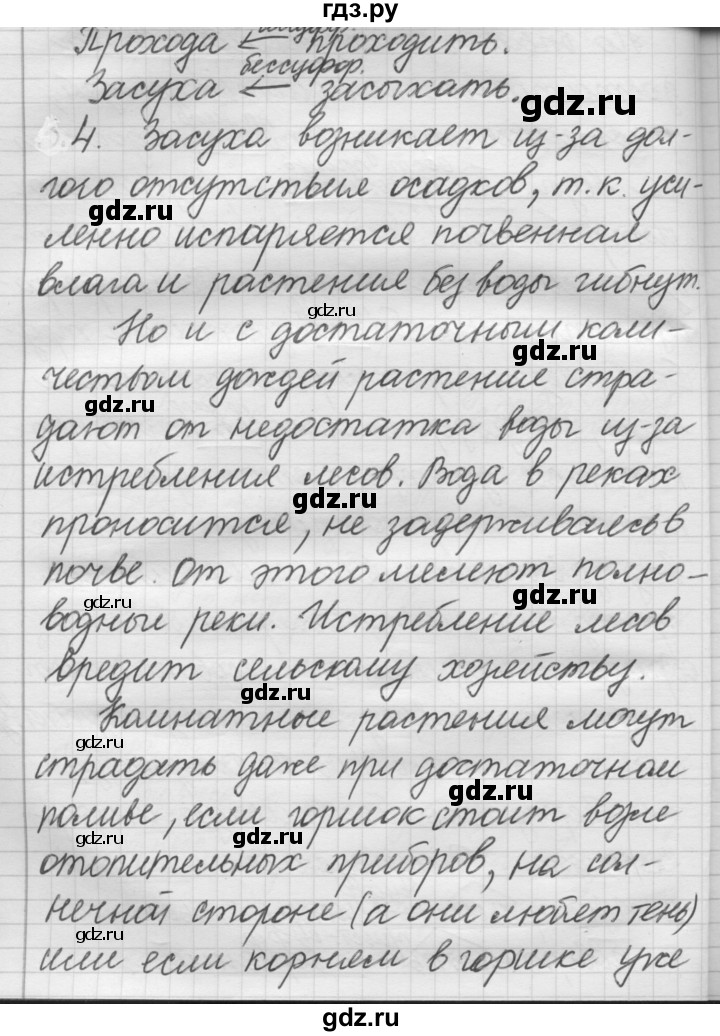 гдз.ру
Прохода ← проходить.
бессуфф.
Засуха ← засыхать.
gdz.ru
4. Засуха возникает из-за дол-
гого отсутствия осадков, т.к. уси-
gdz.ru
ленно испаряется почвенная
влага и растения без воды гибнут.
gdz.ru
Но и с достаточным коли-
gdz.ru
чеством дождей растения стра-
gdz.ru
дают от недостатка воды из-за
истребления лесов. Вода в реках
gdz.ru
проносится, не задерживаясь в
почве. От этого мелеют полно-
gdz.ru
gdz.ru
водные реки. Истребление лесов
вредит сельскому хозяйству.
gdz.ru
Комнатные растения могут
gdz.ru
страдать даже при достаточном
gdz.ru
поливе, если горшок стоит возле
gdz.ru
gdz.ru
отопительных приборов, на сол-
нечной стороне (а они любят тень)
gdz.ru
gdz.ru
или если корням в горшке уже
gdz.ru